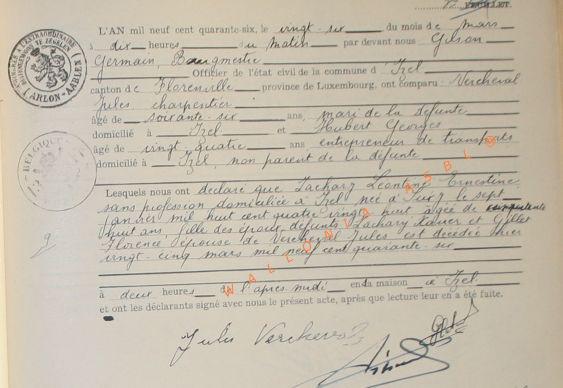 FEUILLET.
L'AN mil neuf cent quarante-six, le vingt-six du mois de mars
à dix heures du matin par devant nous Gison
Germain, Baugnestie
Officier de l'état civil de la commune d'Izel
canton de Florenville province de Luxembourg, ont comparu Vercheval
Jules charpentier
âgé de soixante-six ans, mari de la défunte
domicilié à Izel et Hubert Georges
âgé de vingt quatre ans entrepreneur de transports
domicilié à Izel, non parent de la défunte
Lesquels nous ont déclaré que Zachary Léontine Ernestine
sans profession domiciliée à Izel née à Suxy le sept
janvier mil huit cent quatre vingt huit âgée de cinquante
huit ans, fille des époux défunts Zachary Xavier et Gillet
Florence épouse de Vercheval Jules est décédée hier
vingt-cinq mars mil neuf cent quarante-six
à deux heures de l'après midi en sa maison à Izel
et ont les déclarants signé avec nous le présent acte, après que lecture leur en a été faite.
Jules Vercheval
WALLONIA ASBL
(ARLON-AARLEN)
BELGIQUE
9